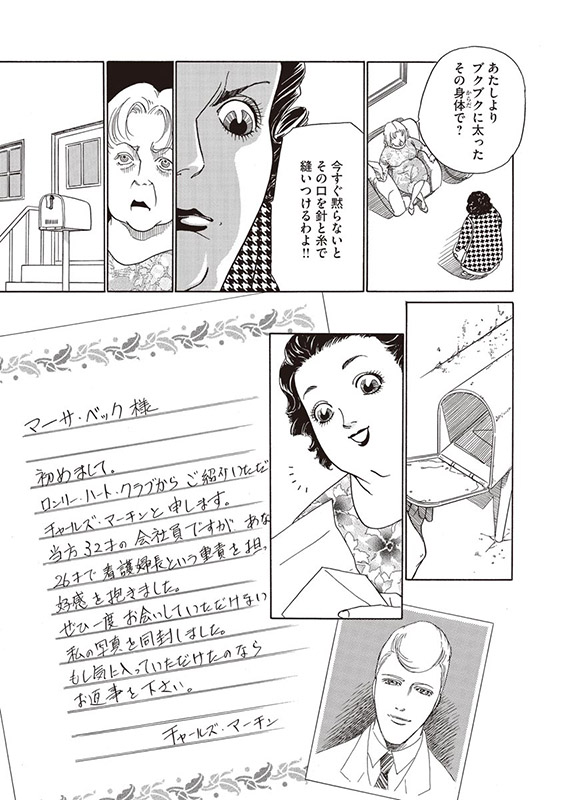 あたしより
ブクブクに太った
その身体で？
からだ
今すぐ黙らないと
その口を針と糸で
縫いつけるわよ!!
マーサ・ベック 様
初めまして。
ロンリー・ハート・クラブから ご紹介いただ
チャールズ・マーチンと申します。
当方 32才の会社員ですが あな
26才で看護婦長という重責を担,
好感を抱きました。
ぜひ一度 お会いしていただけない
私の写真を同封しました。
もし気に入っていただけたのなら
お返事を下さい。
チャールズ・マーチン